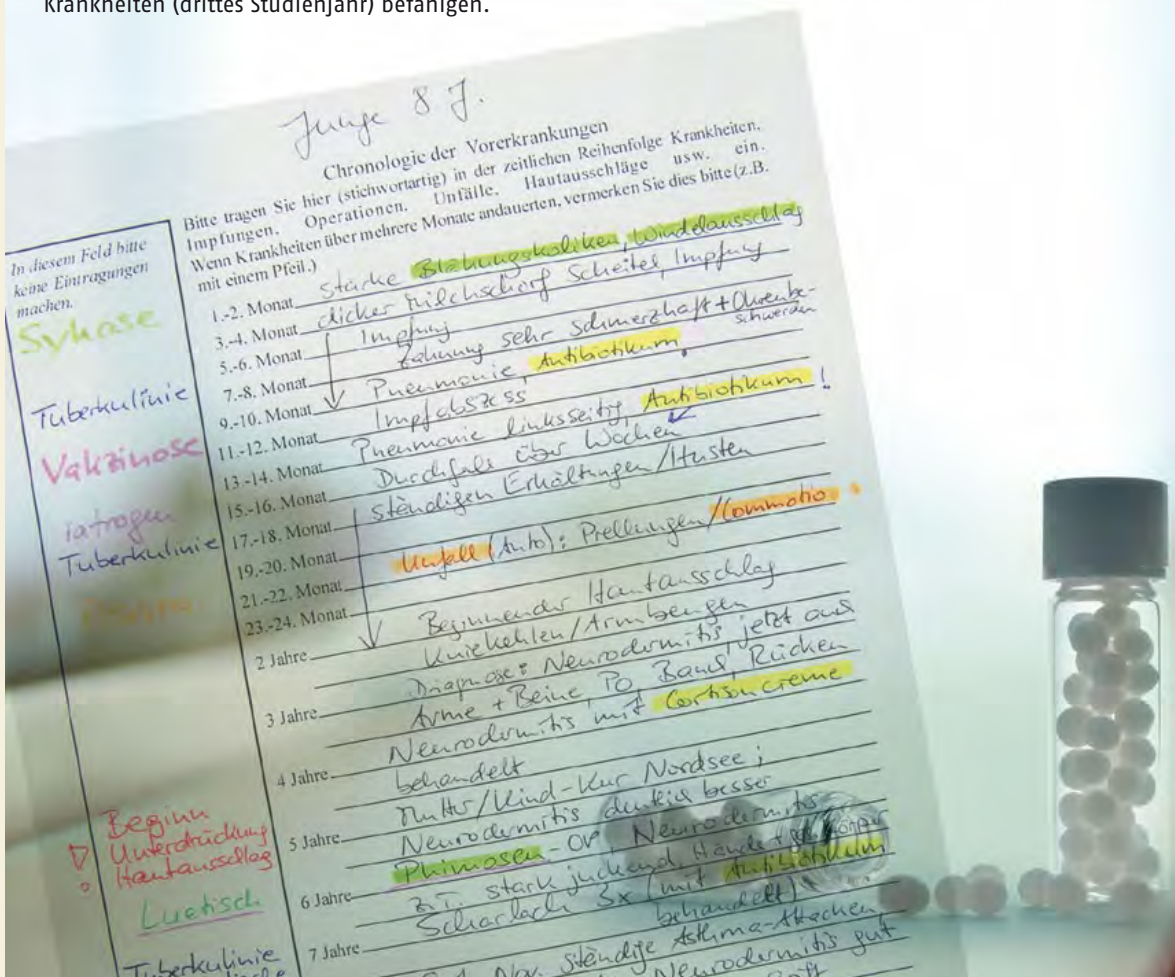 Krankheiten (drittes Studienjahr) befähigen.
Junge 8 J.
Chronologie der Vorerkrankungen
Bitte tragen Sie hier (stichwortartig) in der zeitlichen Reihenfolge Krankheiten,
Impfungen, Operationen, Unfälle, Hautausschläge usw. ein.
Wenn Krankheiten über mehrere Monate andauerten, vermerken Sie dies bitte (z.B.
mit einem Pfeil.)
In diesem Feld bitte
keine Eintragungen
machen.
1.-2. Monat starke Blähungskoliken, Windelausschlag
3.-4. Monat dicker Milchschorf Scheitel, Impfung
5.-6. Monat Impfung
7.-8. Monat Zahnung sehr schmerzhaft + Ohrenbe-
schwerden
9.-10. Monat Pneumonie, Antibiotikum
11.-12. Monat Impfabszess
13.-14. Monat Pneumonie linksseitig, Antibiotikum!
15.-16. Monat Durchfall über Wochen
17.-18. Monat ständigen Erkältungen/Husten
19.-20. Monat
21.-22. Monat Unfall (Auto): Prellungen/Commotio
23.-24. Monat
2 Jahre Beginnender Hautausschlag
Kniekehlen/Armbeugen
3 Jahre Diagnose: Neurodermitis, jetzt auch
Arme + Beine, Po, Bauch, Rücken
4 Jahre Neurodermitis mit Cortisoncreme
behandelt
5 Jahre Mutter/Kind-Kur Nordsee;
Neurodermitis deutlich besser
6 Jahre Phimosen-OP Neurodermitis
z.T. stark juckend, Hände
7 Jahre Scharlach 3x (mit Antibiotikum
behandelt)
Nov. ständige Asthma-Attacken,
Neurodermitis gut
Sykose
Tuberkulinie
Vakzinose
iatrogen
Tuberkulinie
Beginn
Unterdrückung
Hautausschlag
Luetisch
Tuberkulinie